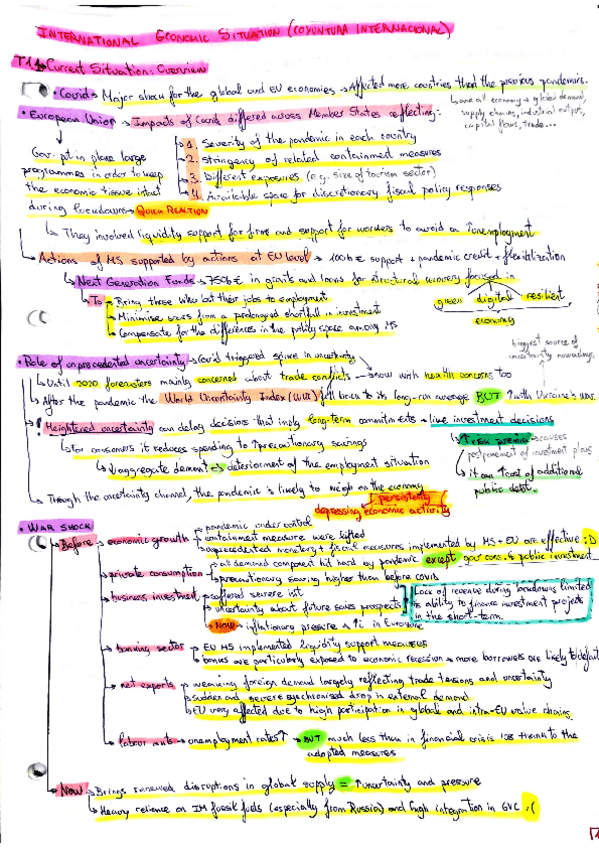 INTERNATIONAL ECONOMIC SITUATION (COYUNTURA INTERNACIONAL)
T1. Current Situation: Overview
• Covid → Major shock for the global and EU economies → Affected more countries than the previous pandemics.
→ and all economy → global demand,
supply chains, industrial output,
capital flows, trade...
• European Union → Impacts of covid differed across Member States reflecting:
1. Severity of the pandemic in each country
2. Stringency of related containment measures
3. Different exposures (e.g. size of tourism sector)
4. Available space for discretionary fiscal policy responses
Gov. put in place large
programmes in order to keep
the economic tissue intact
during lockdowns → QUICK REACTION
→ They involved liquidity support for firms and support for workers to avoid an ↑unemployment
→ Actions of MS supported by actions at EU level → 100b€ support + pandemic credit + flexibilization
→ Next Generation Funds → 750b€ in grants and loans for structural recovery focused in
green digital resilient
economy
→ To → Bring those who lost their jobs to employment
→ Minimise from a prolonged shortfall in investment
→ Compensate for the differences in the policy space among MS
• Role of unprecedented uncertainty → Covid triggered spike in uncertainty
biggest source of
uncertainty nowadays.
→ Until 2020 forecasters mainly concerned about trade conflicts → now with health concerns too
→ After the pandemic the World Uncertainty Index (WUI) fell back to its long-run average BUT ↑ with Ukraine's war.
! Heightened uncertainty can delay decisions that imply long-term commitments → like investment decisions
→ For consumers it reduces spending to ↑precautionary savings
↓aggregate demand → deteriorment of the employment situation
→ ↑risk premia → causes
postponement of investment plans
→ it can ↑cost of additional
public debt.
→ Through the uncertainty channel, the pandemic is likely to weigh on the economy
persistently
depressing economic activity
• WAR SHOCK
→ Before → economic growth → pandemic under control
→ containment measure were lifted
→ unprecedented monetary + fiscal measures implemented by MS + EU are effective :D
→ private consumption → all demand component hit hard by pandemic except gov cons. & public investment
→ precautionary saving higher than before covid
→ business investment → suffered severe hit
→ uncertainty about future sales prospects
→ NOW → inflationary pressure + ↑i in Eurozone
Lack of revenue during lockdowns limited
is ability to finance investment projects
in the short-term.
→ banking sector → EU MS implemented liquidity support measures
→ banks are particularly exposed to economic recession → more borrowers are likely to default
→ net exports → weakening foreign demand largely reflecting trade tensions and uncertainty
→ sudden and severe synchronised drop in external demand
→ EU very affected due to high participation in global and intra-EU value chains
→ labour mkts → unemployment rates↑ → BUT much less than in financial crisis '08 thanks to the
adopted measures
→ Now → Brings renewed disruptions in global supply = ↑uncertainty and pressure
→ Heavy reliance on IM fossil fuels (especially from Russia) and high integration in GVC :(
1